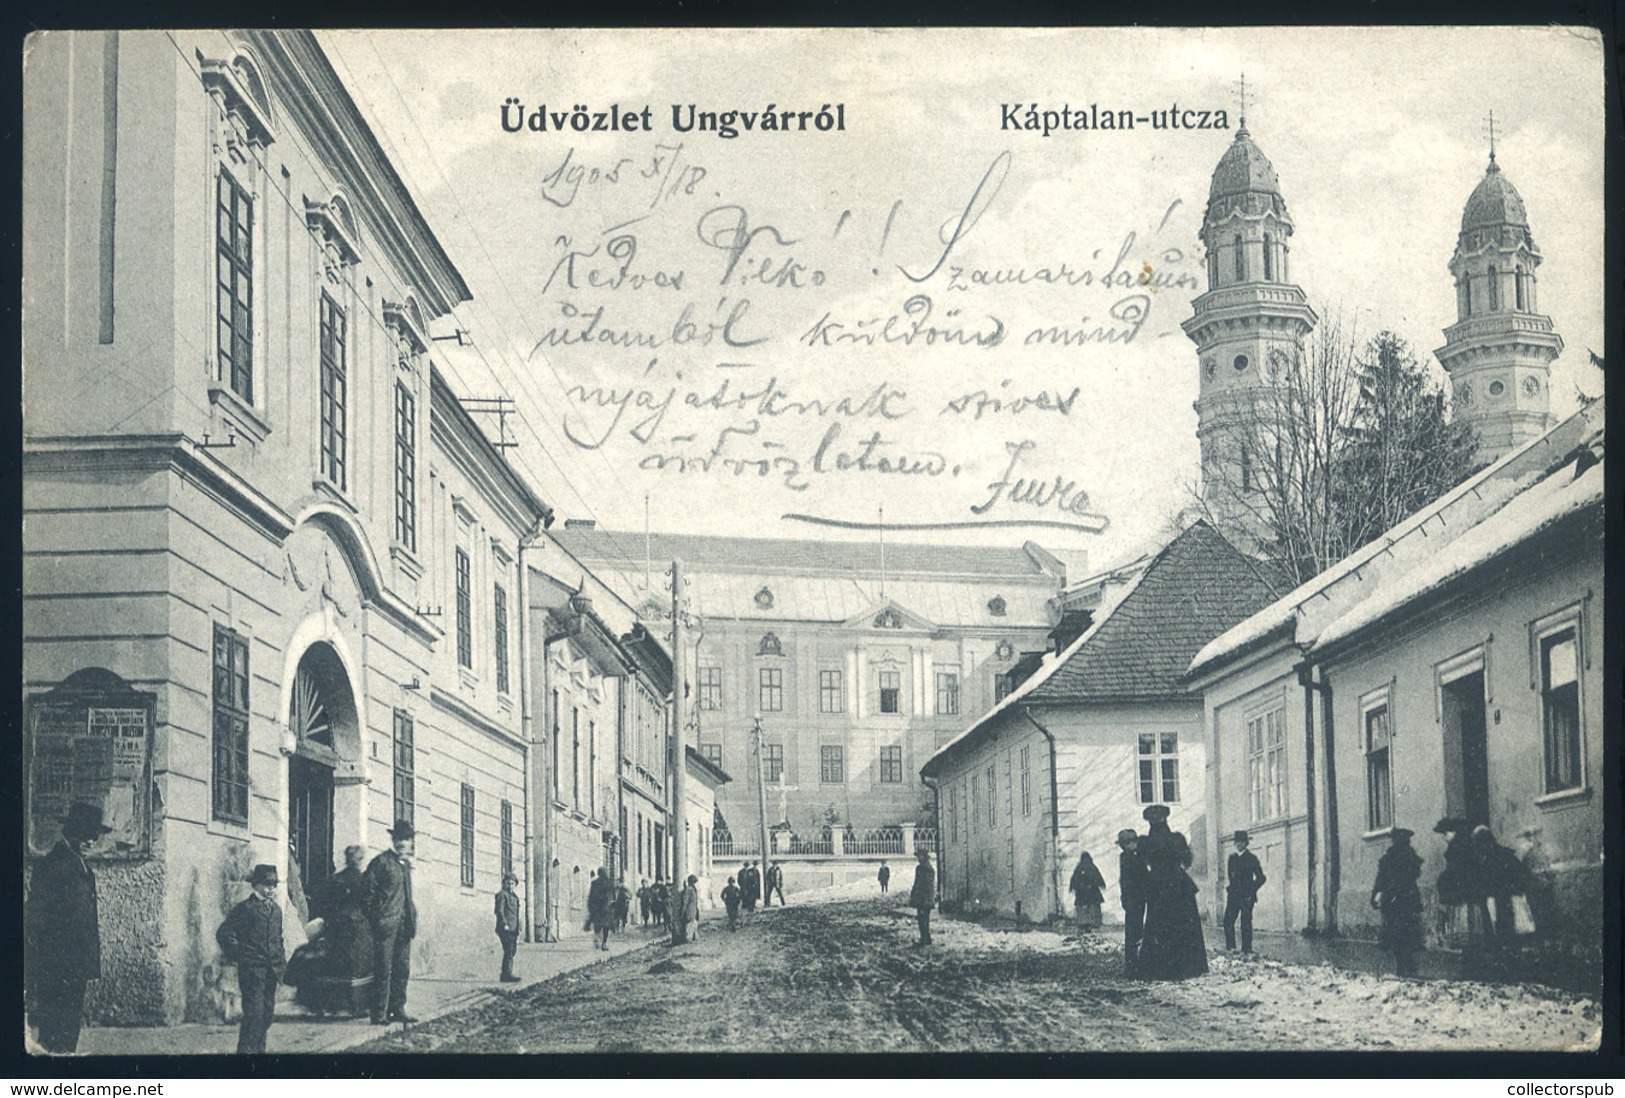 Üdvözlet Ungvárról
Káptalan-utcza
1905 X/18.
Kedves Vilkó! Szamaritánusi
útamból küldöm mind-
nyájatoknak szives
üdvözletem. Imre
www.delcampe.net
collectorspub